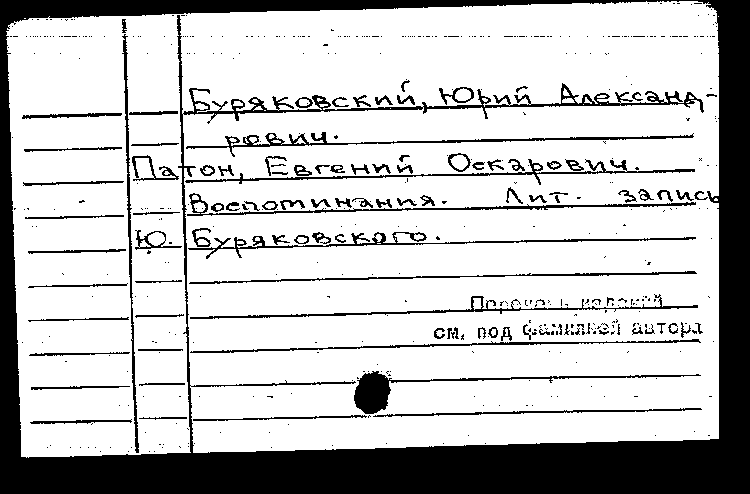 Буряковский, Юрий Александ-
рович.
Патон, Евгений Оскарович.
Воспоминания. Лит. запись
Ю. Буряковского.
Перечень изданий
см. под фамилией автора